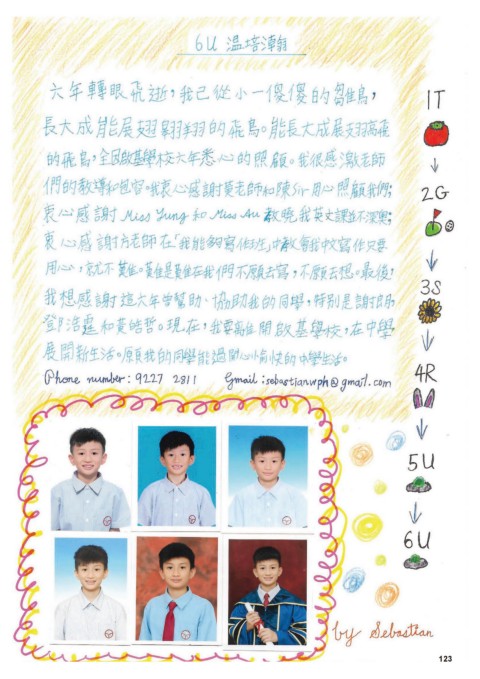 6U 温培瀚
六年轉眼飛逝，我已從小一傻傻的雛鳥，
長大成能展翅翱翔的飛鳥。能長大成展翅高飛
的飛鳥，全因啟基學校六年悉心的照顧。我很感激老師
們的教導和包容。我衷心感謝莫老師和陳Sir用心照顧我們；
衷心感謝 Miss Yung 和 Miss Au 教曉我英文課並不深奧；
衷心感謝方老師在「我能夠寫作班」中教會我中文寫作只要
用心，就不難。難是難在我們不願去寫，不願去想。最後，
我想感謝這六年曾幫助、協助我的同學，特別是謝
鄧浩 和黃皓哲。現在，我要離開啟基學校，在中學
展開新生活。願我的同學能過開心愉快的中學生活。
Phone number: 9227 2811 Gmail: sebastianwph@gmail.com
1T
2G
3S
4R
5U
6U
by Sebastian
123